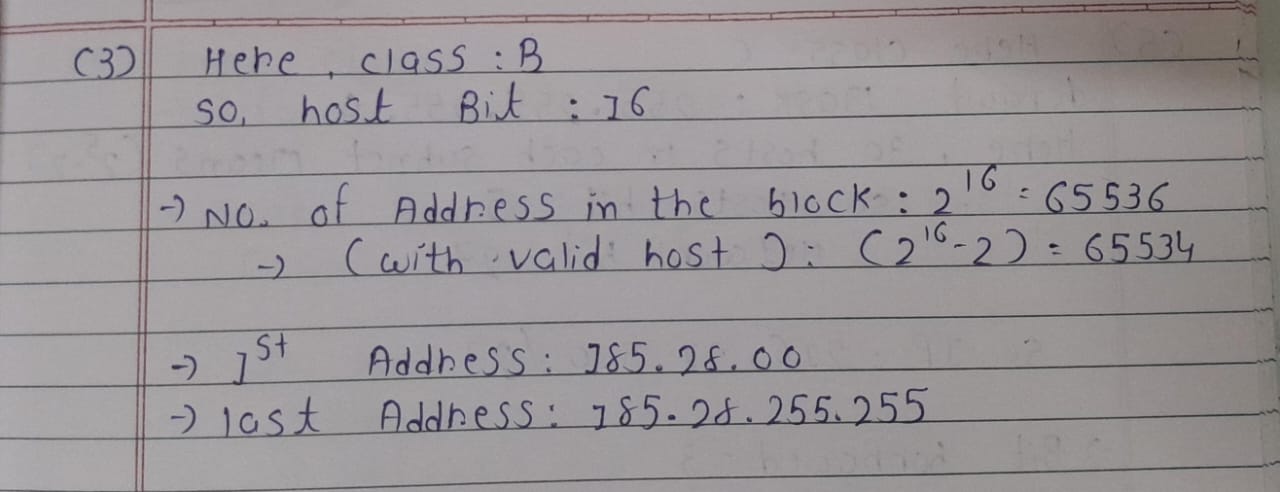 (3) Here, class : B
so, host Bit : 16
→ No. of Address in the block : 2^16 = 65536
→ (with valid host) : (2^16-2) = 65534
→ 1st Address : 185.28.00
→ last Address : 185.28.255.255